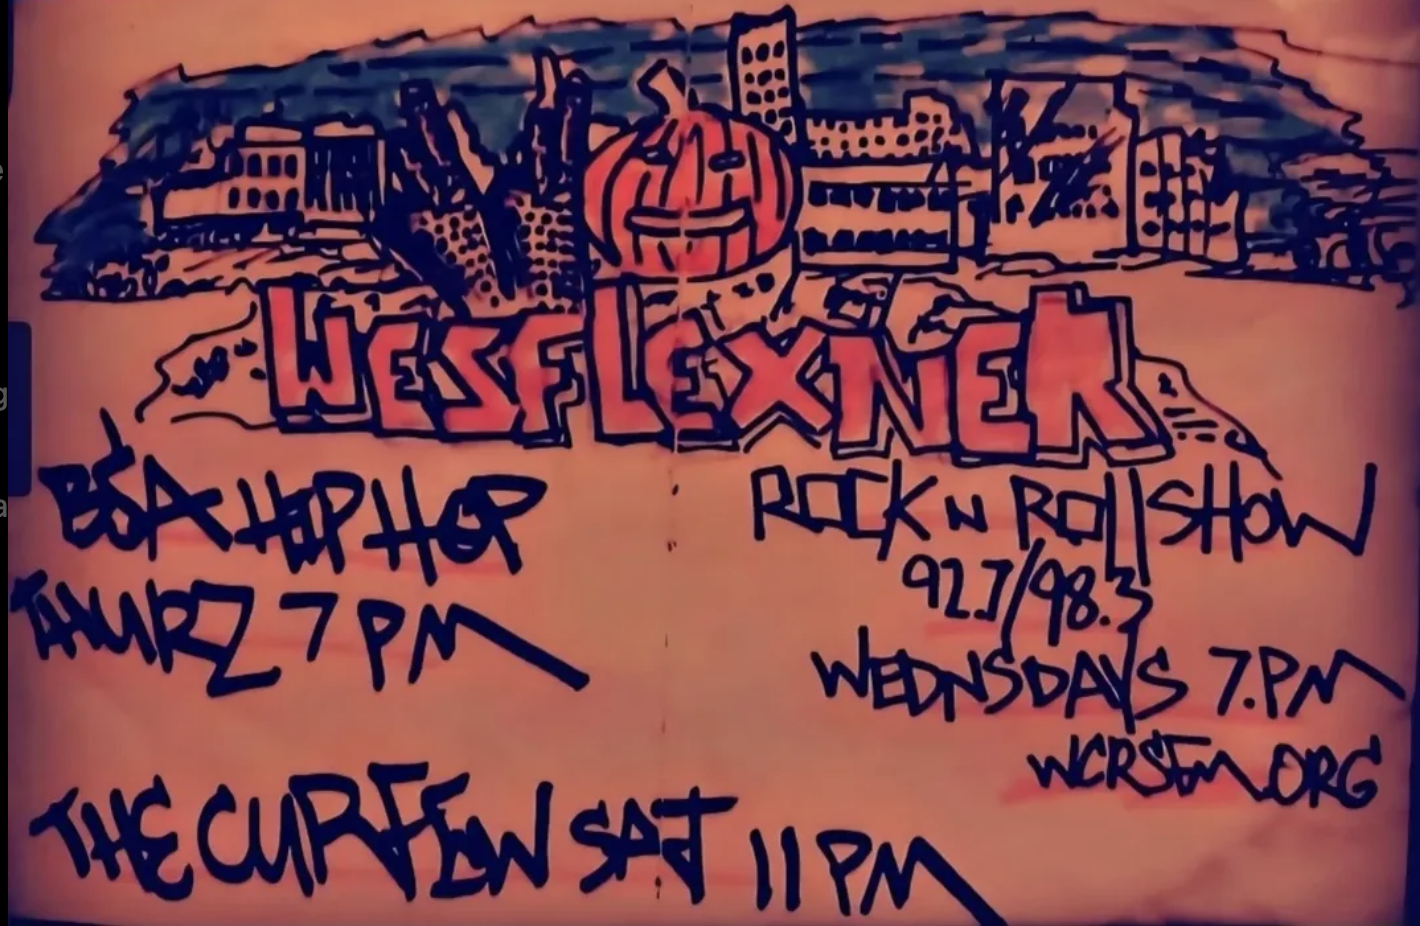 WESFLEXNER
BSA HIP HOP
THURZ 7 PM
ROCK N ROLL SHOW
92.7/98.3
WEDNSDAYS 7.PM
WCRSFM.ORG
THE CURFEW SAT 11 PM